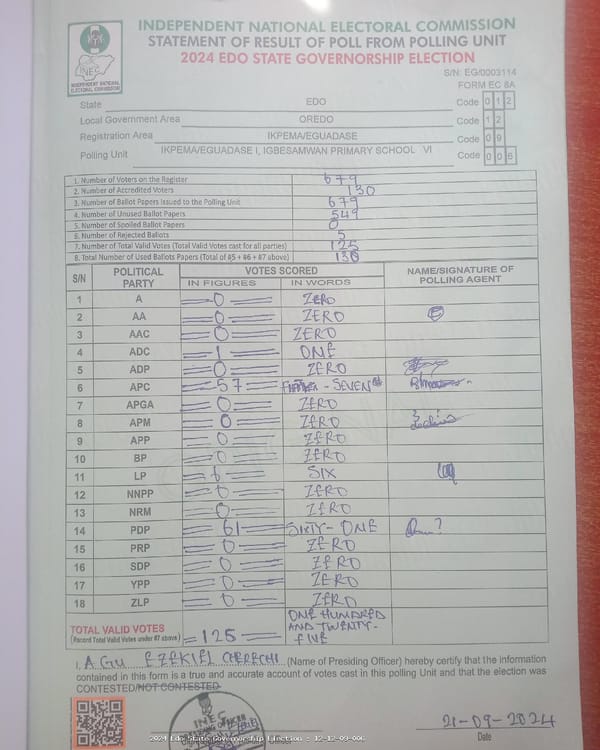 INDEPENDENT NATIONAL ELECTORAL COMMISSION
STATEMENT OF RESULT OF POLL FROM POLLING UNIT
2024 EDO STATE GOVERNORSHIP ELECTION
INEC
INDEPENDENT NATIONAL
ELECTORAL COMMISSION
S/N: EG/0003114
FORM EC 8A
State EDO Code 0 1 2
Local Government Area OREDO Code 1 2
Registration Area IKPEMA/EGUADASE Code 0 9
Polling Unit IKPEMA/EGUADASE I, IGBESAMWAN PRIMARY SCHOOL VI Code 0 0 6
1. Number of Voters on the Register 679
2. Number of Accredited Voters 130
3. Number of Ballot Papers Issued to the Polling Unit 679
4. Number of Unused Ballot Papers 549
5. Number of Spoiled Ballot Papers 0
6. Number of Rejected Ballots 5
7. Number of Total Valid Votes (Total Valid Votes cast for all parties) 125
8. Total Number of Used Ballots Papers (Total of #5 + #6 + #7 above) 130
S/N POLITICAL PARTY VOTES SCORED NAME/SIGNATURE OF POLLING AGENT
IN FIGURES IN WORDS
1 A 0 ZERO
2 AA 0 ZERO
3 AAC 0 ZERO
4 ADC 1 ONE
5 ADP 0 ZERO
6 APC 57 - SEVEN
7 APGA 0 ZERO
8 APM 0 ZERO
9 APP 0 ZERO
10 BP 0 ZERO
11 LP 6 SIX
12 NNPP 0 ZERO
13 NRM 0 ZERO
14 PDP 61 SIXTY-ONE
15 PRP 0 ZERO
16 SDP 0 ZERO
17 YPP 0 ZERO
18 ZLP 0 ZERO
TOTAL VALID VOTES
(Record Total Valid Votes under #7 above) =125= ONE HUNDRED
AND TWENTY-
FIVE
I, AGU EZEKIEL (Name of Presiding Officer) hereby certify that the information
contained in this form is a true and accurate account of votes cast in this polling Unit and that the election was
CONTESTED/NOT CONTESTED
INEC
21-09-2024
Date
2024 Edo State Governorship Election : 12-12-09-006